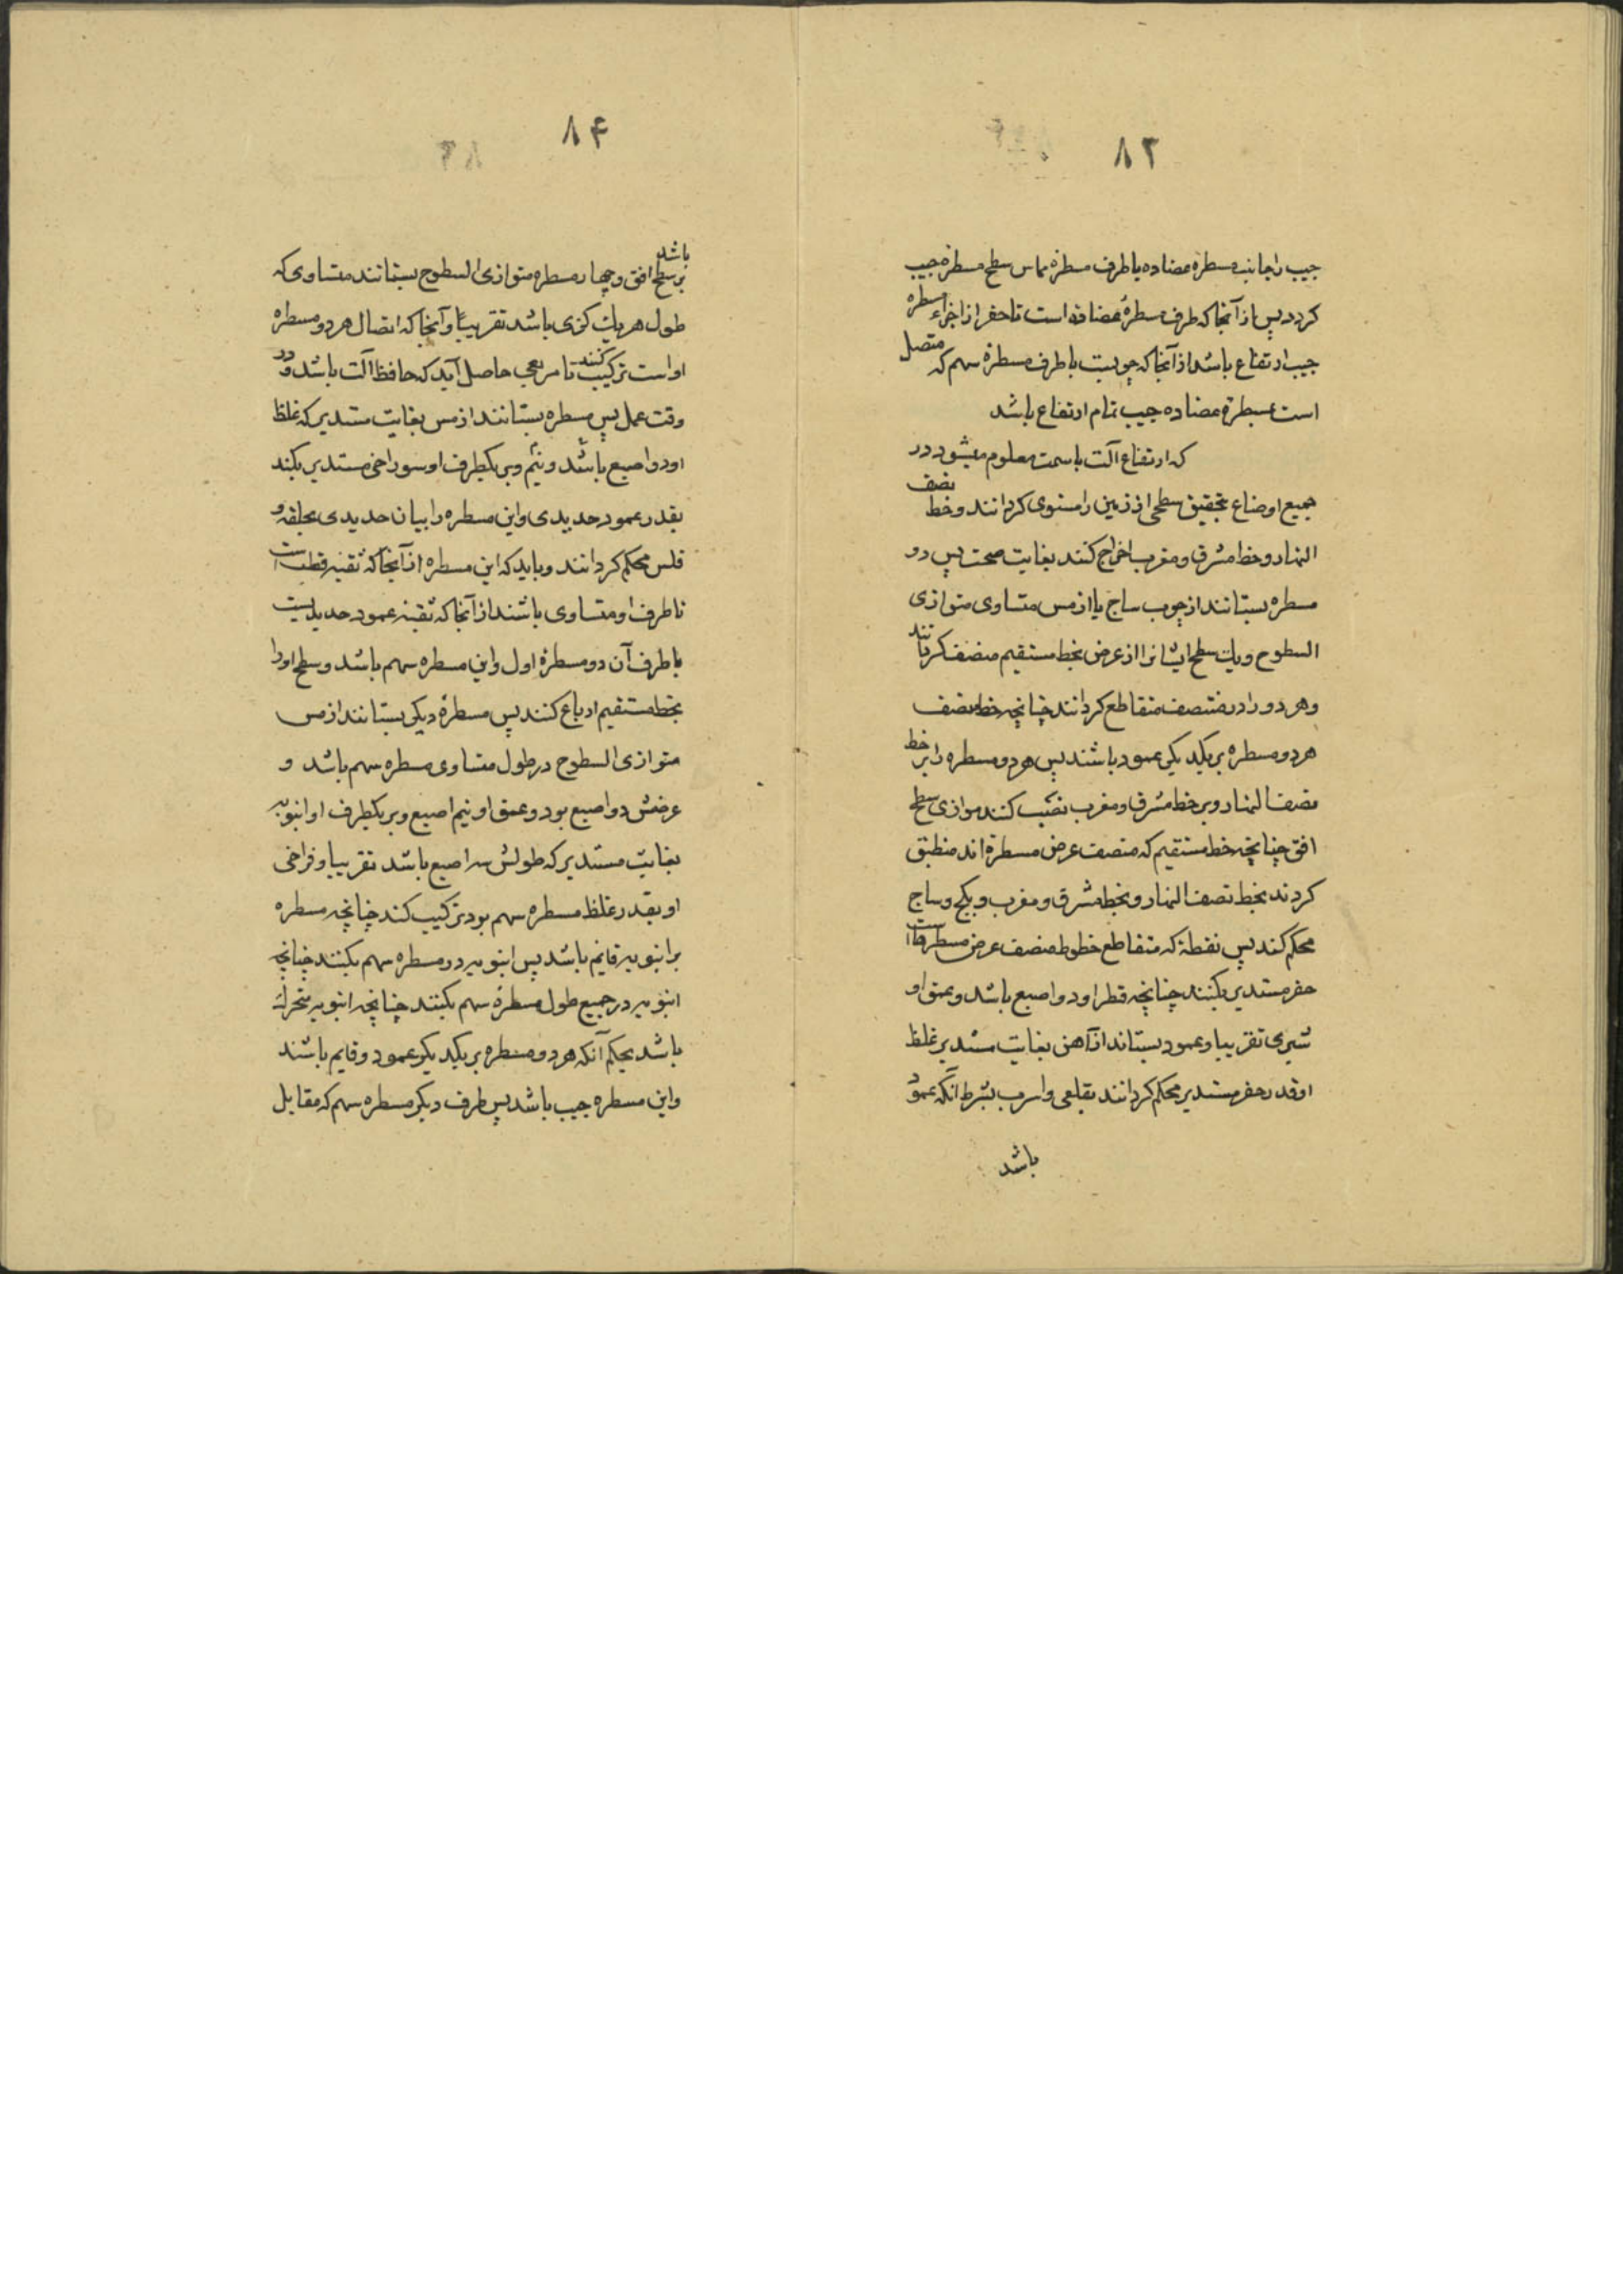 ٨٣
جیب را بجانب مسطرهٔ عضاده یا طرف مسطرهٔ مماس سطح مسطرهٔ جیب
کردد پس از آنجا که طرف مسطرهٔ عضاده است تا حفر از اجزاء مسطره
جیب ارتفاع باشد از آنجا که جیبست با طرف مسطرهٔ سهم که متصل
است بمسطرهٔ عضاده جیب تمام ارتفاع باشد
که ارتفاع آلت با سمت معلوم میشود در
جمیع اوضاع بتحقیق سطحی از زمین را مستوی کردانند و خط نصف
النهار و خط مشرق و مغرب اخراج کنند بغایت صحت پس دو
مسطره بستانند از چوب ساج یا از مس متساوی متوازی
السطوح و یک سطح ایشانرا از عرض بخط مستقیم منصف کردانند
و هر دو را در منتصف متقاطع کردانند چنانچه خط منصف
هر دو مسطره بر یکدیکر عمود باشند پس هر دو مسطره را بر خط
نصف النهار و بر خط مشرق و مغرب نصب کنند موازی سطح
افق چنانچه خط مستقیم که منصف عرض مسطرهٔ اند منطبق
کردند بخط نصف النهار و بخط مشرق و مغرب و بکچ و ساج
محکم کنند پس نقطهٔ که متقاطع خطوط منصف عرض مسطرهاست
حفر مستدیر بکنند چنانچه قطر او دو اصبع باشد و عمق او
شبری تقریبا و عمود بستاند از آهن بغایت مستدیر غلظ
او قدر حفر مستدیر محکم کردانند بقلعی و اسرب بشرط آنکه عمود
باشد
٨۴
باشد
بر سطح افق و چهار مسطره متوازی السطوح بستانند متساوی که
طول هر یک کزی باشد تقریباً و آنجا که اتصال هر دو مسطره
او است ترکیب کنند تا مربعی حاصل آید که حافظ آلت باشد در
وقت عمل پس مسطره بستانند از مس بغایت مستدیر که غلظ
او دو اصبع باشد و نیم و بر یکطرف او سوراخی مستدیر بکند
بقدر عمود حدیدی و این مسطره را بیان حدیدی بحلقه و
فلس محکم کردانند و باید که این مسطره از آنجا که ثقبه قطب است
تا طرف او متساوی باشند از آنجا که ثقبه عمود حدیدیست
با طرف آن دو مسطرهٔ اول و این مسطره سهم باشد و سطح او را
بخط مستقیم ارباع کنند پس مسطرهٔ دیکر بستانند از مس
متوازی السطوح در طول متساوی مسطره سهم باشد و
عرضش دو اصبع بود و عمق او نیم اصبع و بر یکطرف او انبوبه
بغایت مستدیر که طولش سه اصبع باشد تقریبا و فراخی
او بقدر غلظ مسطره سهم بود ترکیب کند چنانچه مسطره
بر انبوبه قایم باشد پس انبوبه در مسطره سهم بکنند چنانچه
انبوبه در جمیع طول مسطرهٔ سهم بکنند چنانچه انبوبه متحرک
باشد بحکم آنکه هر دو مسطره بر یکدیکر عمود و قایم باشند
و این مسطره جیب باشد پس طرف دیکر مسطره سهم که مقابل